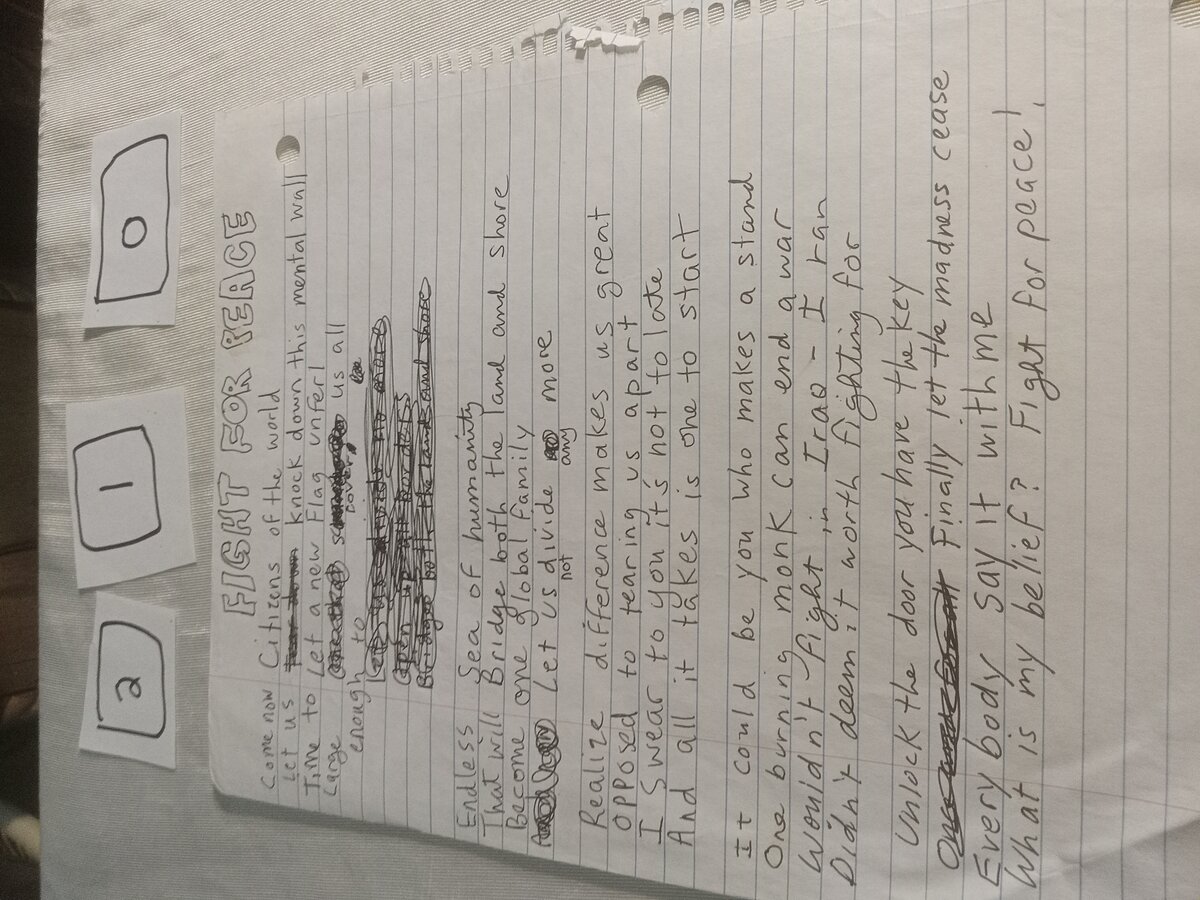 2 1 0
FIGHT FOR PEACE
Come now Citizens of the world
Let us knock down this mental wall
Time to Let a new Flag unferl
Large us all
cover
enough to
Endless Sea of humanity
That will Bridge both the land and shore
Become one global family
Let us divide more
not any
Realize difference makes us great
Opposed to tearing us apart
I Swear to you it's not to late
And all it takes is one to start
It could be you who makes a stand
One burning monk can end a war
Wouldn't fight in Iraq - I ran
Didn't deem it worth fighting for
Unlock the door you have the key
Finally let the madness cease
Every body Say it with me
What is my belief? Fight for peace!